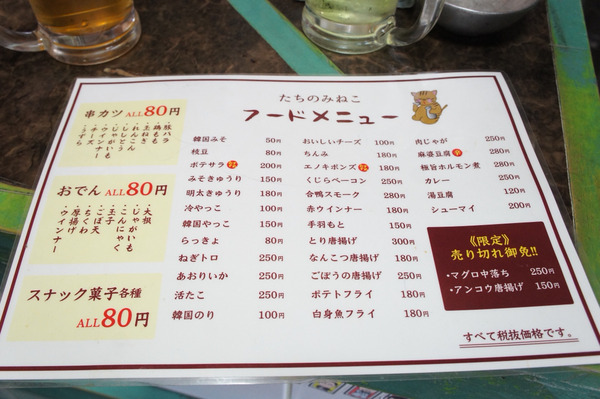 たちのみねこ
フードメニュー
串カツ ALL80円
豚バラ
鶏もも
玉ねぎ
れんこん
しいたけ
じゃがいも
ウインナー
チーズ
うずら
おでん ALL80円
大根
じゃがいも
こんにゃく
玉子
ごぼ天
ちくわ
厚揚げ
ウインナー
スナック菓子各種
ALL80円
韓国みそ 50円
枝豆 80円
ポテサラ 200円
みそきゅうり 150円
明太きゅうり 180円
冷やっこ 100円
韓国やっこ 150円
らっきょ 80円
ねぎトロ 250円
あおりいか 250円
活たこ 250円
韓国のり 100円
おいしいチーズ 100円
ちんみ 180円
エノキポンズ 180円
くじらベーコン 250円
合鴨スモーク 280円
赤ウインナー 180円
手羽もと 150円
とり唐揚げ 300円
なんこつ唐揚げ 180円
ごぼうの唐揚げ 250円
ポテトフライ 180円
白身魚フライ 180円
肉じゃが 250円
麻婆豆腐 辛 280円
極旨ホルモン煮 280円
カレー 250円
湯豆腐 120円
シューマイ 200円
《限定》
売り切れ御免!!
・マグロ中落ち 250円
・アンコウ唐揚げ 150円
すべて税抜価格です。